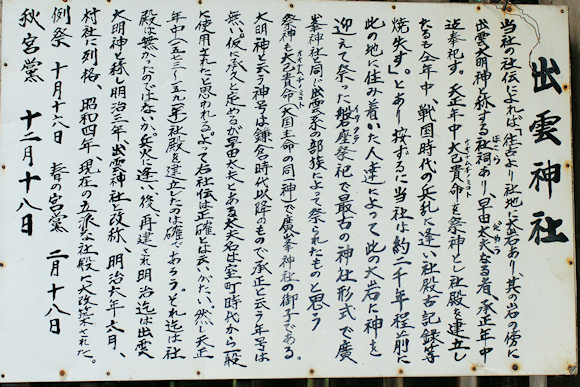 出雲神社
当社の社伝によれば、「往古より社地に大岩あり、其の岩の傍に
出雲大明神と称する社祠あり、早田太夫なる者、承正年中
近奉祀す。天正年中大己貴命を祭神とし社殿を建立し
たるも全年中、戦国時代の兵乱に逢い社殿古記録等
焼失す」。とあり按ずるに当社は約二千年程前に
此の地に住み着いた人達によって此の大岩に神を
迎えて祭った磐座祭祀で最古の神社形式で廣
峯神社と同じ出雲系の部族によって祭られたものと思う
祭神も大己貴命(大国主命の同一神)で廣峯神社の御子である。
大明神と云う神号は鎌倉時代以降のもので承正と云う年号は
無い。仮に永久と定めるが早田太夫とある太夫名は室町時代から一般
に使用されたと思われる。よって右社伝は正確とは云いがたい、然し天正
年中(一五七三~一五九一年)社殿を建立したのは確であろう。それ迄は社
殿は無かったのではないか。兵火に逢い後、再建され明治迄は出雲
大明神と称し明治三年、出雲神社と改称、明治六年六月、
村社に列格、昭和四年、現在の立派な社殿に大改築された。
例祭 十月十六日 春の宮黨 二月十八日
秋宮黨 十二月十八日